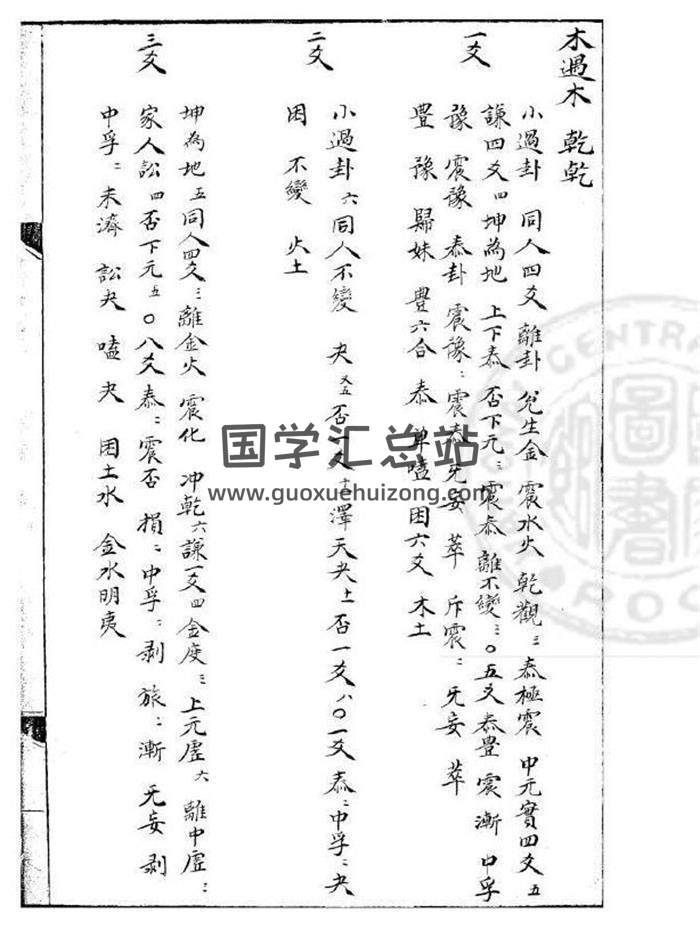 木過木 乾乾
一爻
小過卦 同人四爻 離卦 兌生金 震水火 乾觀三 泰極震 中元實四爻五
謙四爻四坤為地 上下泰 否下元三震泰 離不變三〇五爻泰豐 震 漸 中孚
豫 震豫 泰卦 震豫 震泰无妄 萃 斥震 无妄 萃
豐 豫 歸妹 豐六合 泰 單嗑 困六爻 木土
二爻
小過卦 六同人不變 夬 否一爻 澤天夬 上否一爻 八〇一爻 泰 中孚 夬
困 不變 火土
三爻
坤為地五同人四爻三離金火 震化 冲乾六謙一爻四金度三上元虛六 離中虛
家人訟四否下元五〇八爻泰 震否 損 中孚 剝 旅 漸 无妄 剝
中孚 未濟 訟夬 嗑夬 困土水 金水明夷
国学汇总站
www.guoxuehuizong.com
圖書
CENTRAL